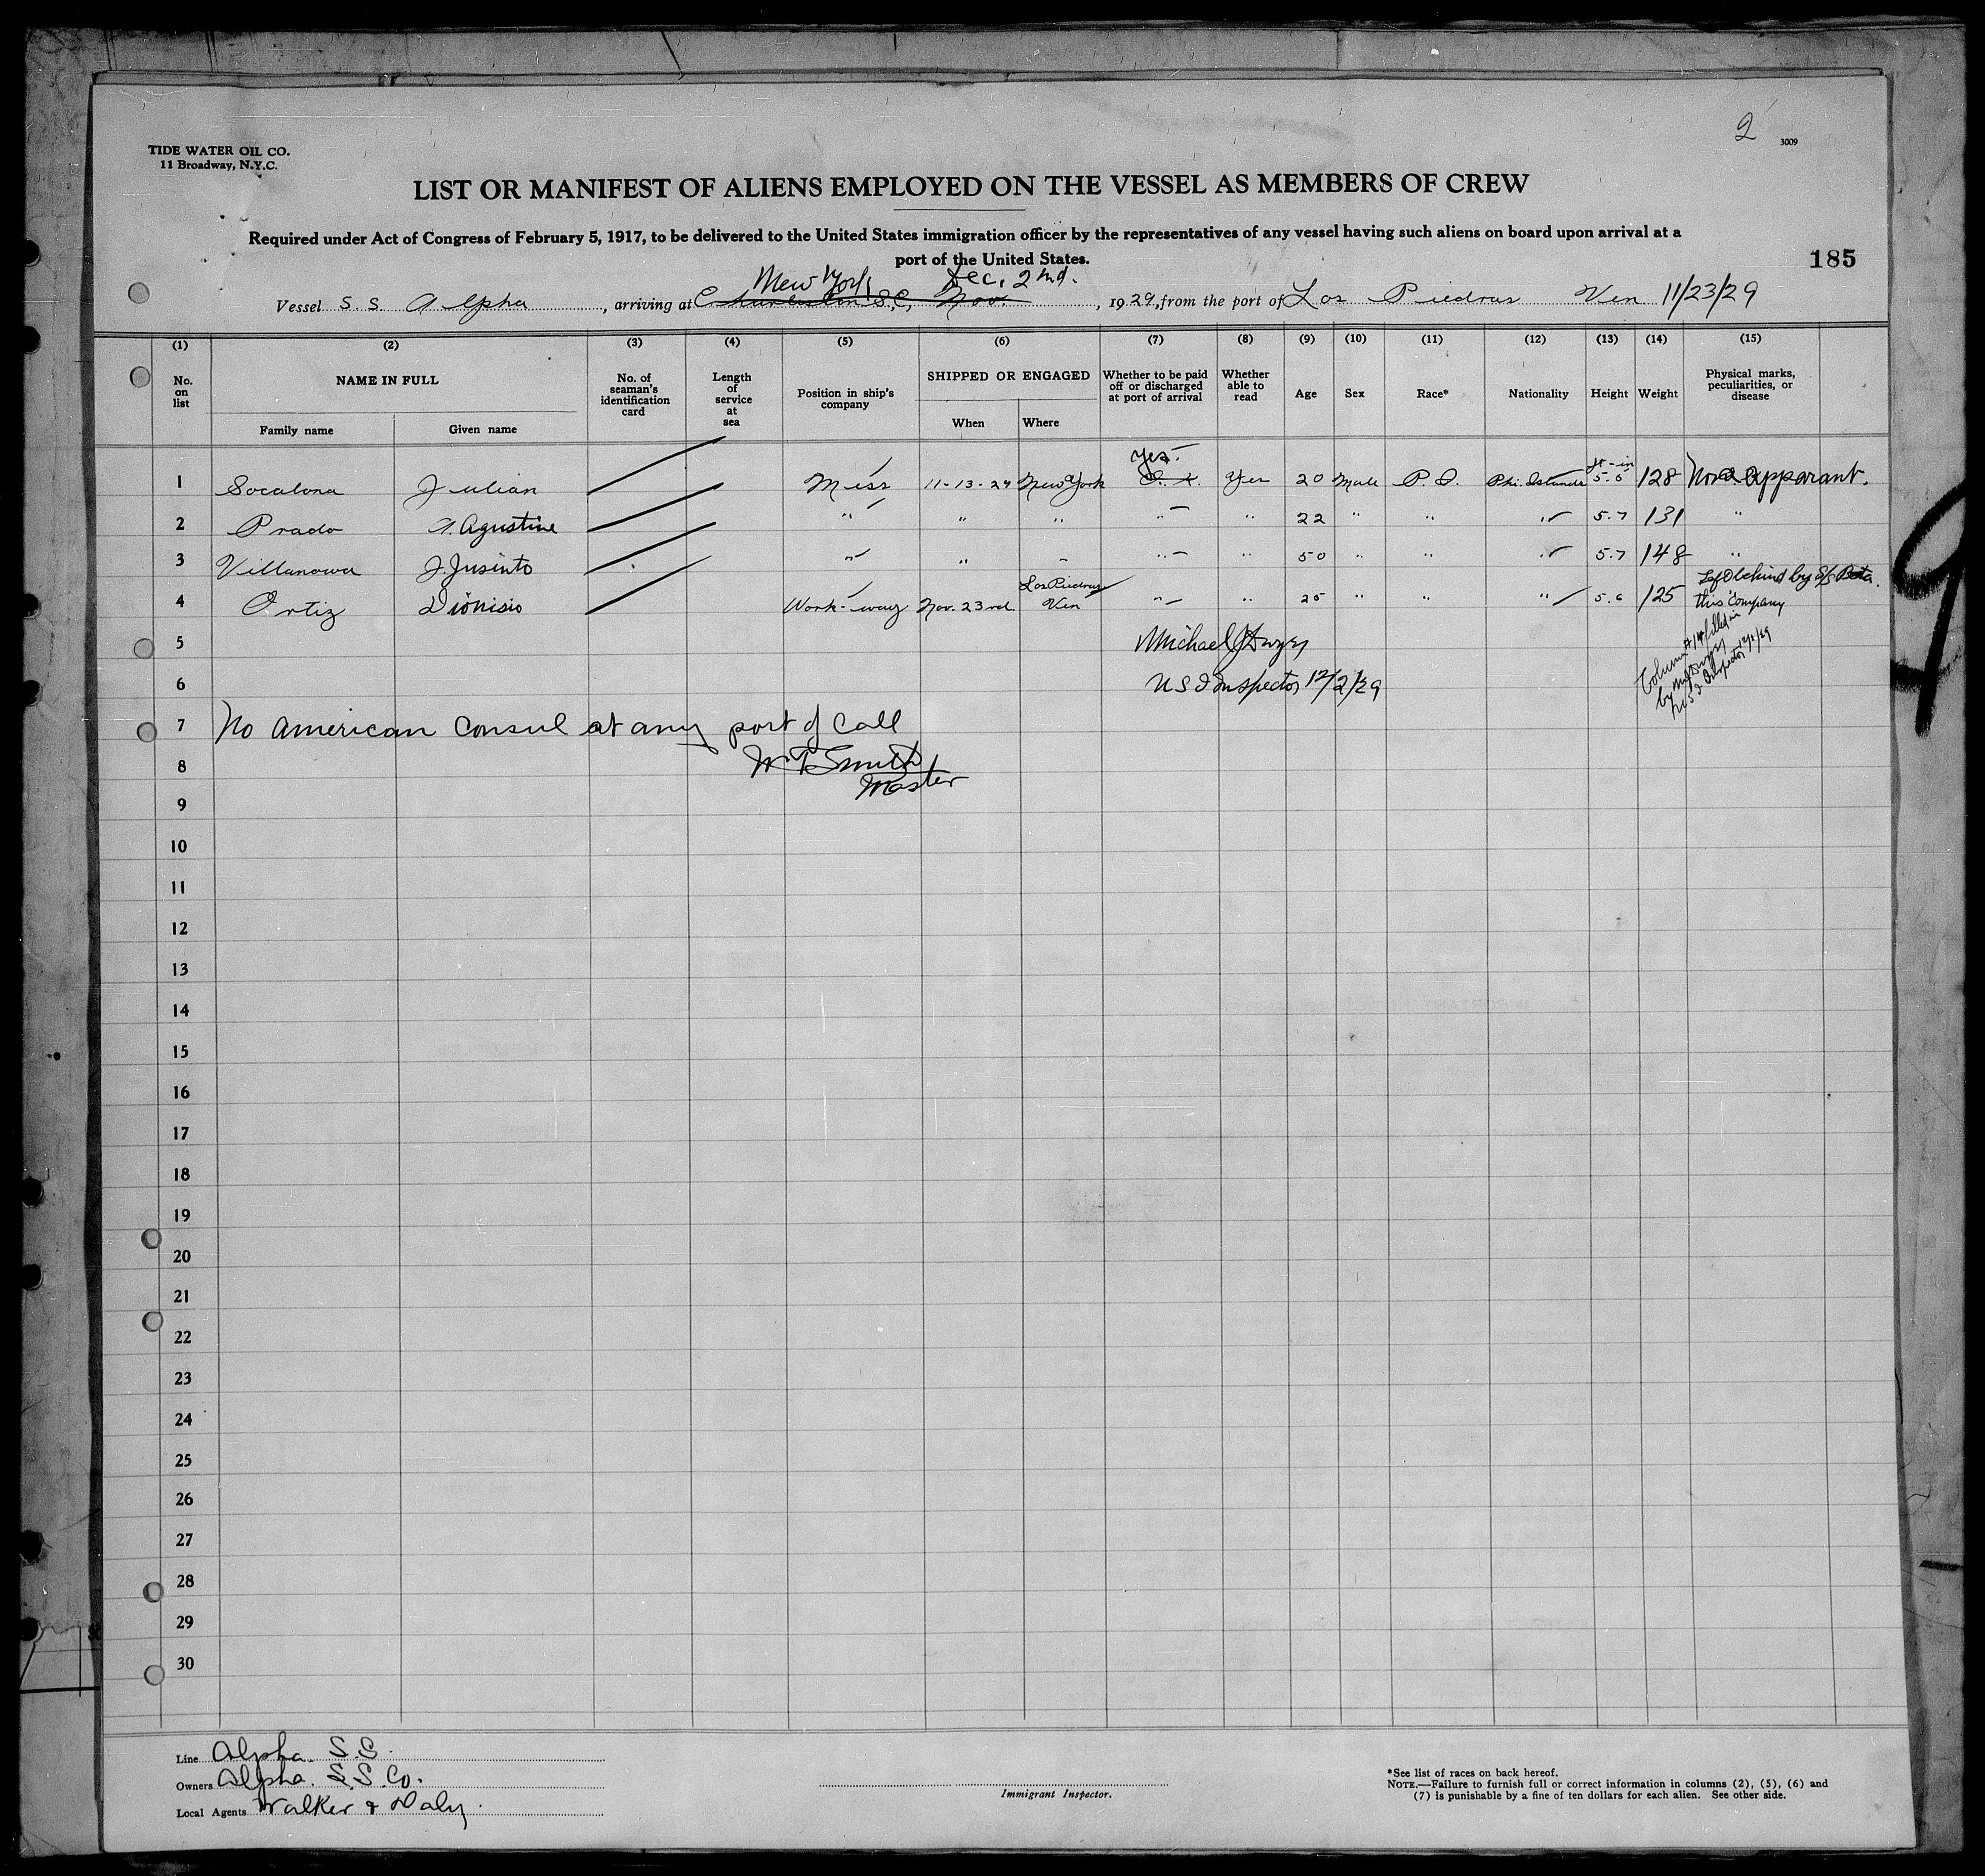 2
3009
TIDE WATER OIL CO.
11 Broadway, N.Y.C.
LIST OR MANIFEST OF ALIENS EMPLOYED ON THE VESSEL AS MEMBERS OF CREW
Required under Act of Congress of February 5, 1917, to be delivered to the United States immigration officer by the representatives of any vessel having such aliens on board upon arrival at a
port of the United States.
185
New York Dec. 2nd.
Vessel S. S. Alpha, arriving at Charleston S.C. Nov., 1929, from the port of Los Piedras Ven 11/23/29
(1) (2) (3) (4) (5) (6) (7) (8) (9) (10) (11) (12) (13) (14) (15)
No. on list NAME IN FULL No. of seaman's identification card Length of service at sea Position in ship's company SHIPPED OR ENGAGED Whether to be paid off or discharged at port of arrival Whether able to read Age Sex Race* Nationality Height Weight Physical marks, peculiarities, or disease
Family name Given name When Where
Yes. ft-in
1 Socalona Julian Mess 11-13-29 New York Yes 20 Male P. I. Phi. Islands 5.5 128 None apparant.
2 Prado Agustine " " " " " 22 " " " 5.7 131 "
3 Villanowa J. Jusinto " " " " " 50 " " " 5.7 148 "
4 Ortiz Dionisio Work-way Nov. 23rd Los Piedras Ven " " 25 " " " 5.6 125 Left behind by S/S Beta this company
5 Michael J Dwyer
6 U S I Inspector 12/2/29
Column 14 filled in
by M J Dwyer
U S I Inspector 12/2/29
7 No American Consul at any port of call
8 W T Smith
Master
9
10
11
12
13
14
15
16
17
18
19
20
21
22
23
24
25
26
27
28
29
30
Line Alpha. S.S.
Owners Alpha. S.S. Co.
Local Agents Walker & Daly.
Immigrant Inspector.
*See list of races on back hereof.
NOTE.—Failure to furnish full or correct information in columns (2), (5), (6) and
(7) is punishable by a fine of ten dollars for each alien. See other side.